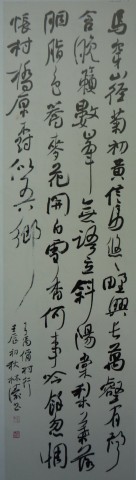 馬穿山徑菊初黃信馬悠悠野興長萬壑有聲
含晚籟數峰無語立斜陽棠梨葉落
胭脂色蕎麥花開白雪香何事吟餘忽惆
悵村橋原樹似吾鄉
王禹偁村行
壬辰初秋